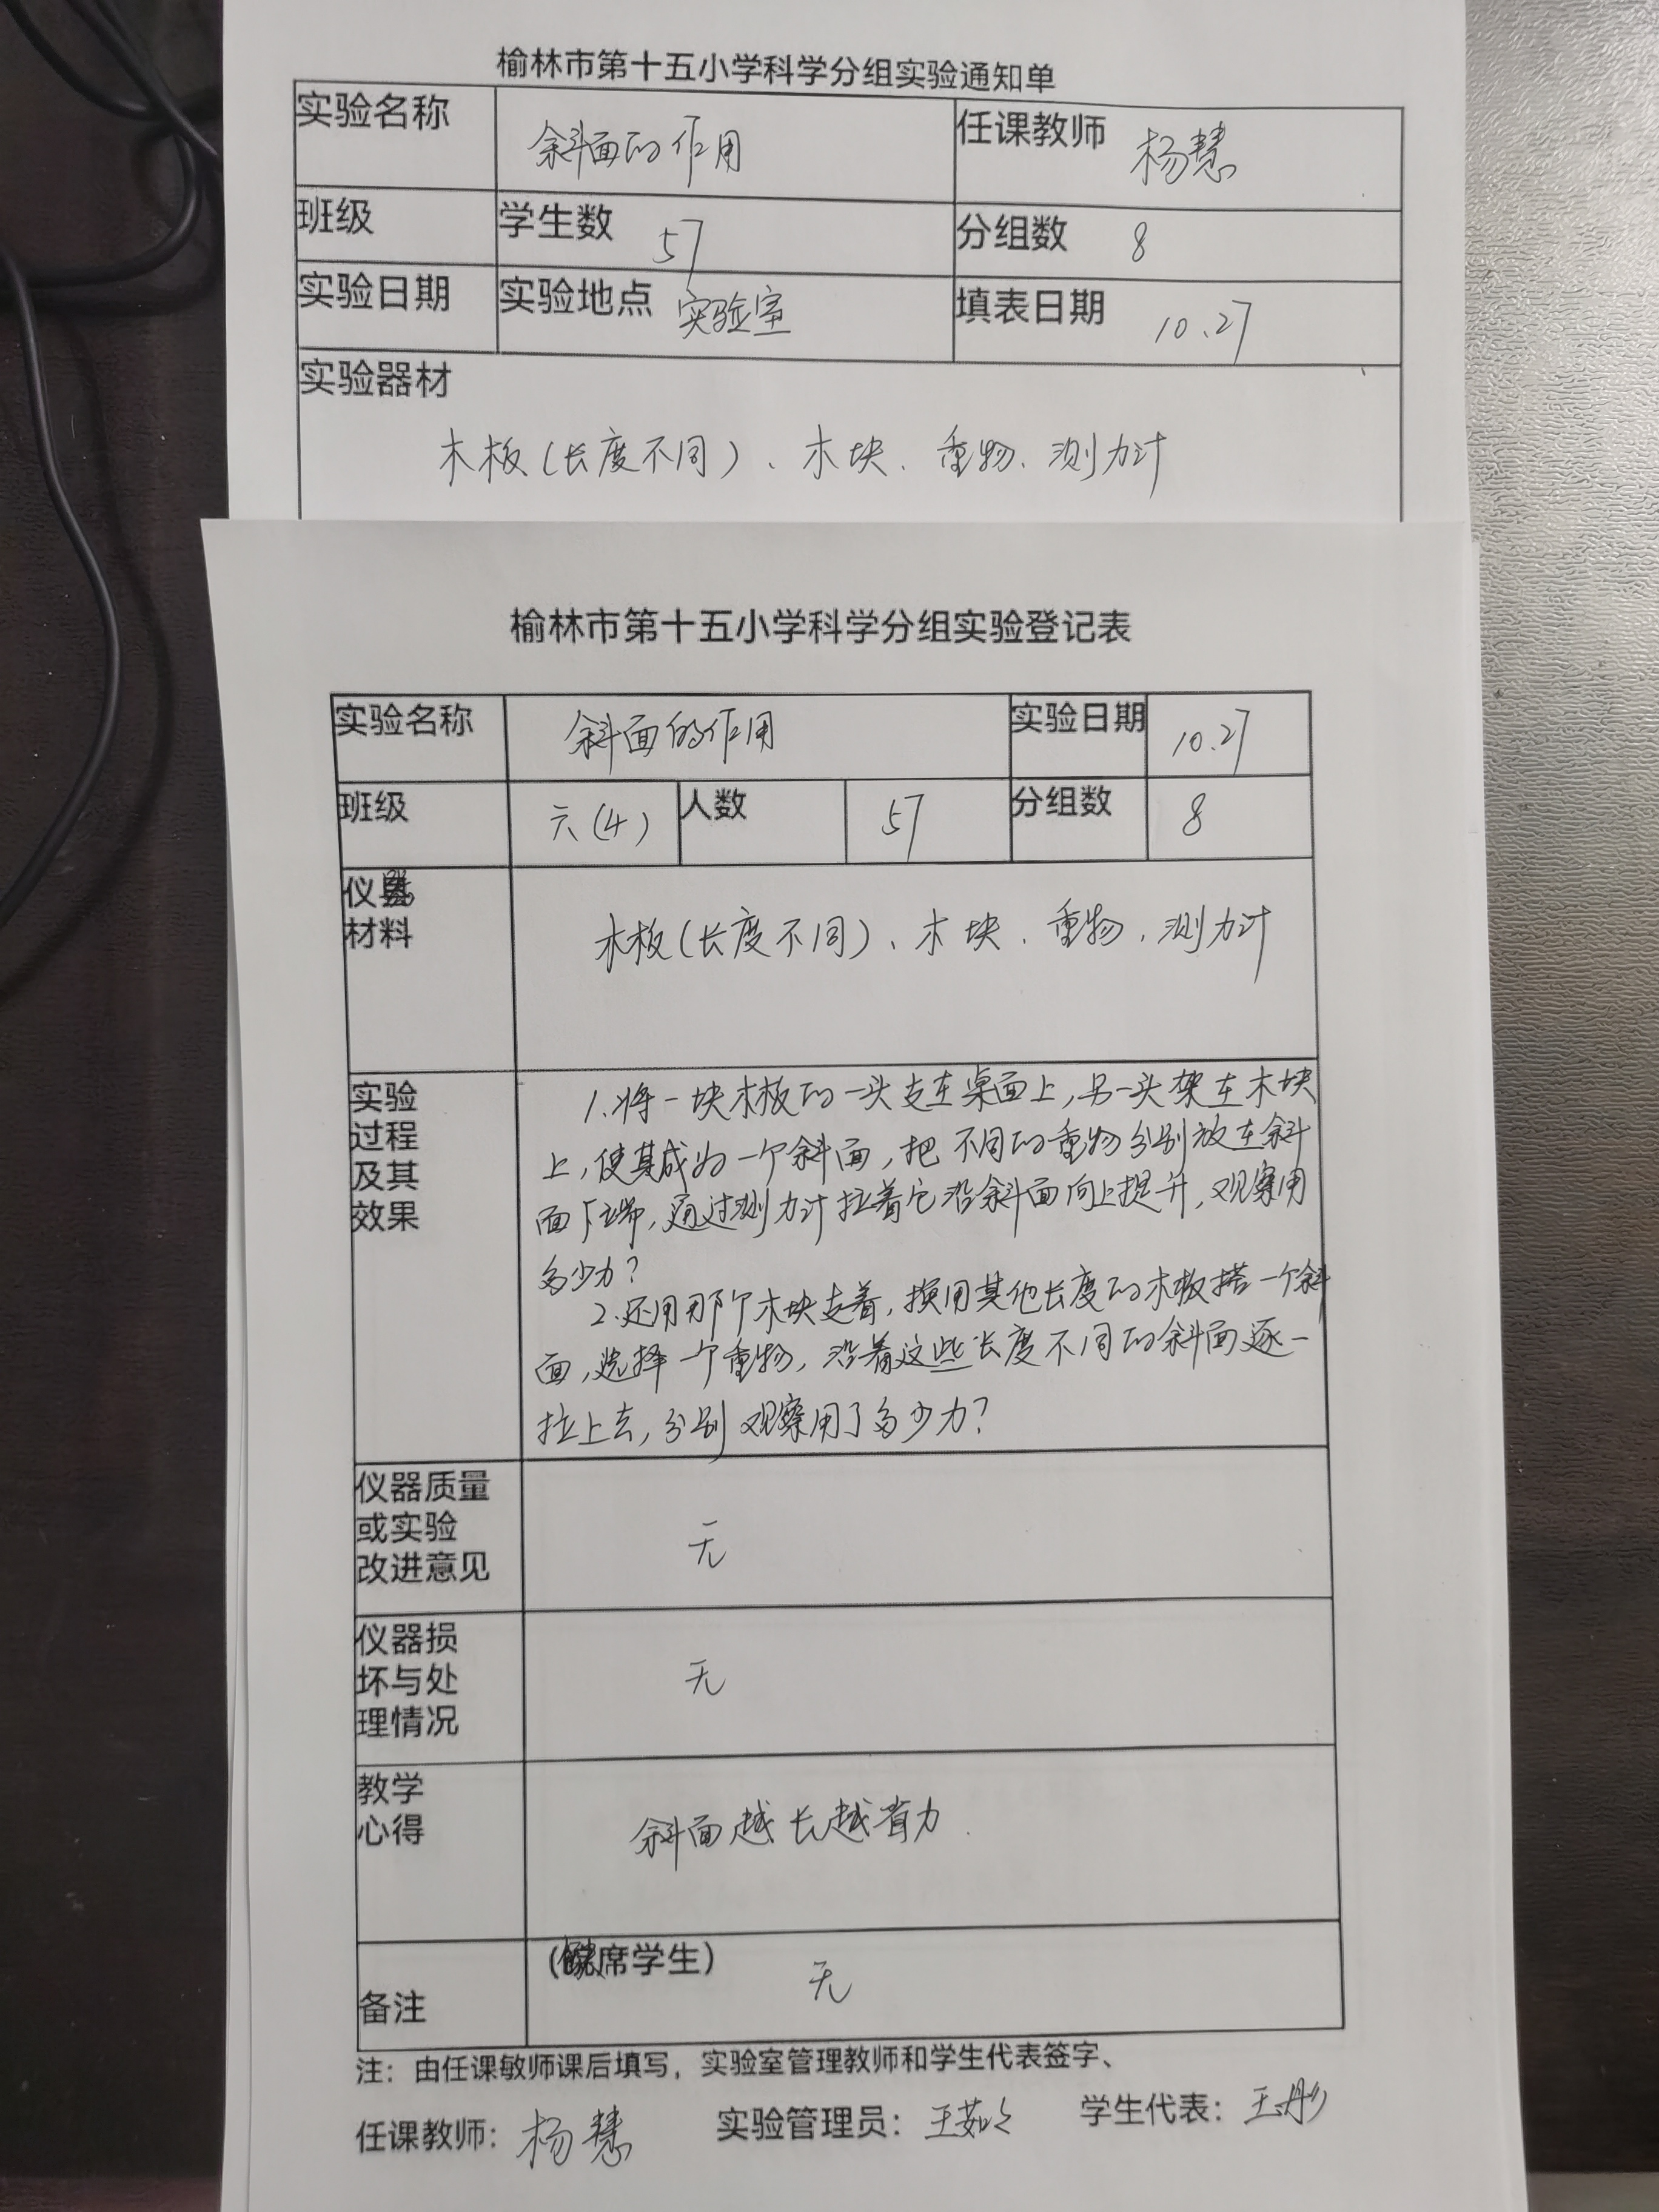 榆林市第十五小学科学分组实验通知单
实验名称 斜面的作用 任课教师 杨慧
班级 学生数 57 分组数 8
实验日期 实验地点 实验室 填表日期 10.27
实验器材
木板(长度不同)、木块、重物、测力计
榆林市第十五小学科学分组实验登记表
实验名称 斜面的作用 实验日期 10.27
班级 六(4) 人数 57 分组数 8
仪器
材料
木板(长度不同)、木块、重物、测力计
实验
过程
及其
效果
1.将一块木板的一头支在桌面上,另一头架在木块
上,使其成为一个斜面,把不同的重物分别放在斜
面下端,通过测力计拉着它沿斜面向上提升,观察用
多少力?
2.还用那个木块支着,换用其他长度的木板搭一个斜
面,选择一个重物,沿着这些长度不同的斜面逐一
拉上去,分别观察用了多少力?
仪器质量
或实验
改进意见
无
仪器损
坏与处
理情况
无
教学
心得
斜面越长越省力.
备注
(缺席学生)
无
注：由任课敏师课后填写，实验室管理教师和学生代表签字、
任课教师：杨慧 实验管理员： 学生代表：王彤